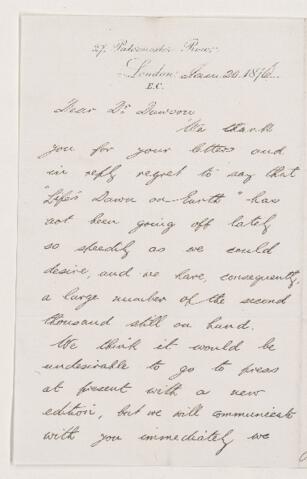 27, Paternoster Row,
London: Jany. 20. 1876.
E.C.
Dear Dr Dawson
We thank
you for your letters and
in reply regret to say that
"Life's Dawn on Earth" has
not been going off lately
so speedily as we could
desire, and we have, consequently,
a large number of the second
thousand still on hand.
We think it would be
undesirable to go to press
at present with a new
edition, but we will communicate
with you immediately we